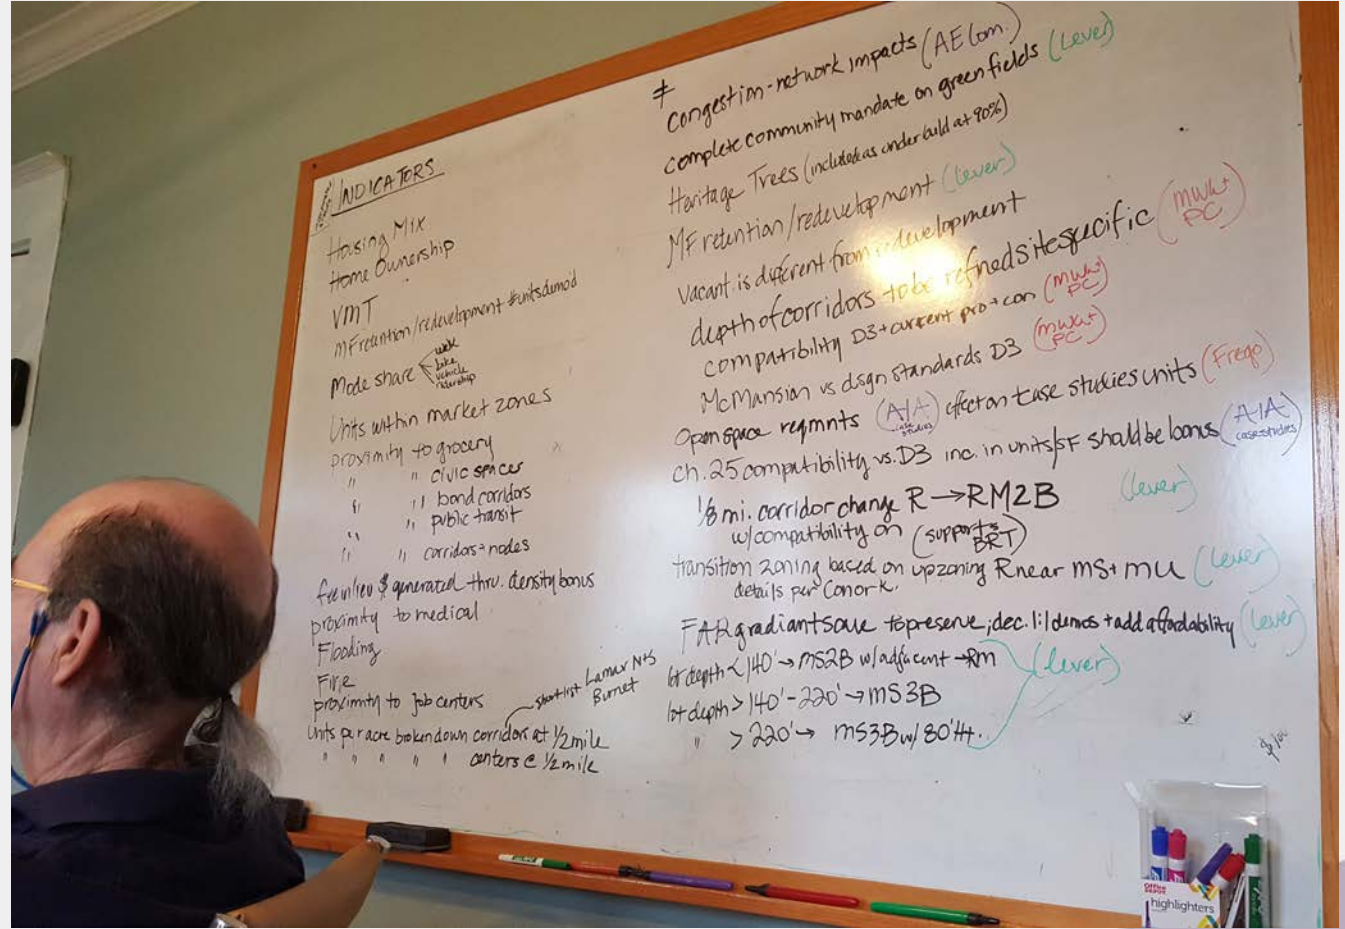 INDICATORS
Housing Mix
Home Ownership
VMT
MF retention/redevelopment #units demod
Mode share
walk
bike
vehicle
ridership
Units within market zones
proximity to grocery
" " civic spaces
" " bond corridors
" " public transit
" " corridors + nodes
fee in lieu $ generated thru. density bonus
proximity to medical
Flooding
Fire
proximity to job centers
Units per acre broken down corridors at 1/2 mile
short list Lamar N+S
Burnet
" " " " " centers @ 1/2 mile
≠
congestion-network impacts (AECom.)
complete community mandate on greenfields (Lever)
Heritage Trees (included as under build at 90%)
MF retention/redevelopment (lever)
Vacant is different from redevelopment
depth of corridors to be refined site specific (MWK+
PC)
compatibility D3 + current pro + con (MWK+
PC)
McMansion vs dsgn standards D3 (MWK+
PC)
Open space reqmnts (AIA
case
studies) effect on case studies units (Frego)
ch. 25 compatibility vs. D3 inc. in units/SF should be bonus (AIA
case studies)
1/8 mi. corridor change R → RM2B (lever)
w/compatibility on (supports
BRT)
transition zoning based on upzoning R near MS + MU (lever)
details per Conor K.
FAR gradiant scale to preserve, dec. 1:1 demos + add affordability (lever)
lot depth < 140' → MS2B w/adjacent → RM (lever)
lot depth > 140' - 220' → MS3B
" > 220' → MS3B w/ 80' Ht.
Office
DEPOT
highlighters